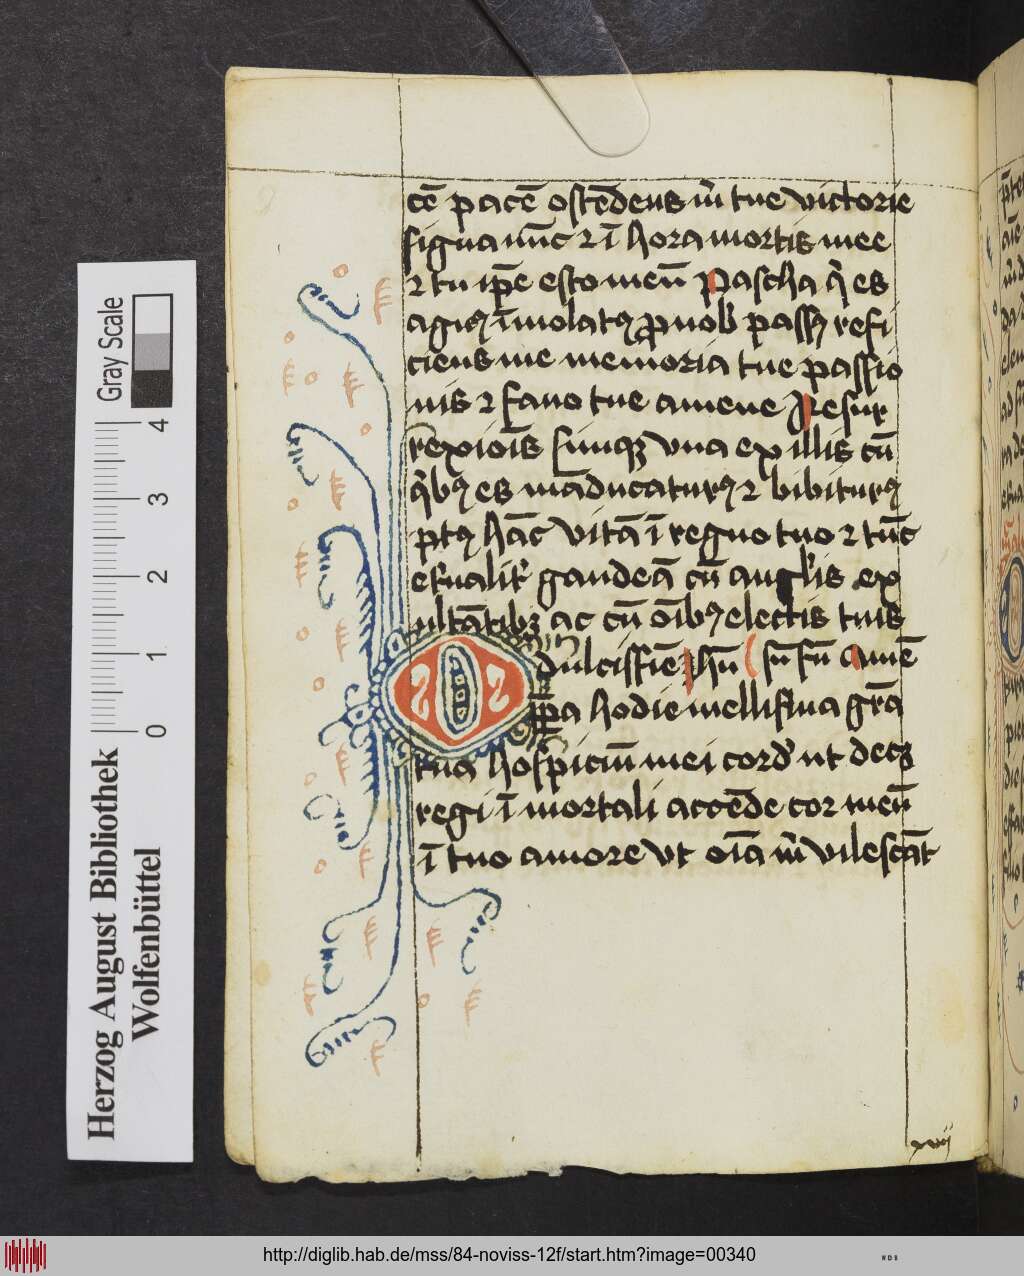 cē pacē ostēdens m̄ tue victorie
signa nūc ⁊ ī hora mortis mee
⁊ tu ip̄e esto meū Pascha q̄ es
agnꝰ īmolatꝰ ꝓ nob̄ passꝰ refi
ciens me memoria tue passio
nis ⁊ fano tue amene Resur
rexiōis sūmqꝫ vna ex illis cū
q̄bꝰ es māducaturꝰ ⁊ bibiturꝰ
ptꝰ hāc vitā ī regno tuo ⁊ tūc
et̄naliṫ gaudeā cū angl̄is ex
ultātibꝫ ac cū oībꝰ electis tuis
O dulcissīe ih̄u amē
p̄pa hodie melliflua gr̄a
tua hospiciū mei cord̄ ut decꝫ
regi ī mortali accēde cor meū
ī tuo amore vt oīa m̄ vilescāt
xvij
Gray Scale
4
3
2
1
0
Herzog August Bibliothek
Wolfenbüttel
http://diglib.hab.de/mss/84-noviss-12f/start.htm?image=00340